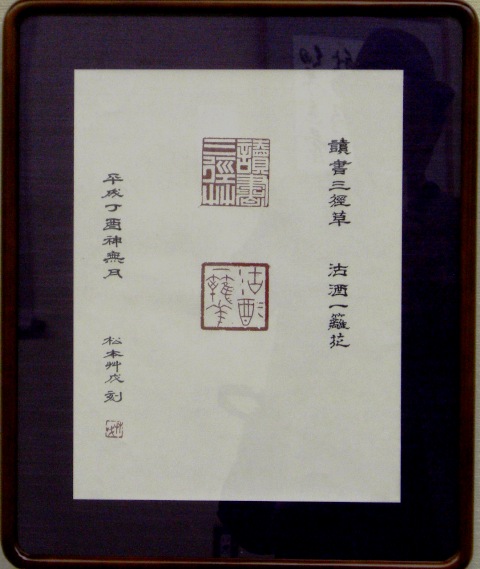 讀書三徑草 沽酒一籬花
讀書
三徑艸
沽酒
一籬
平成丁酉神無月 松本艸刻